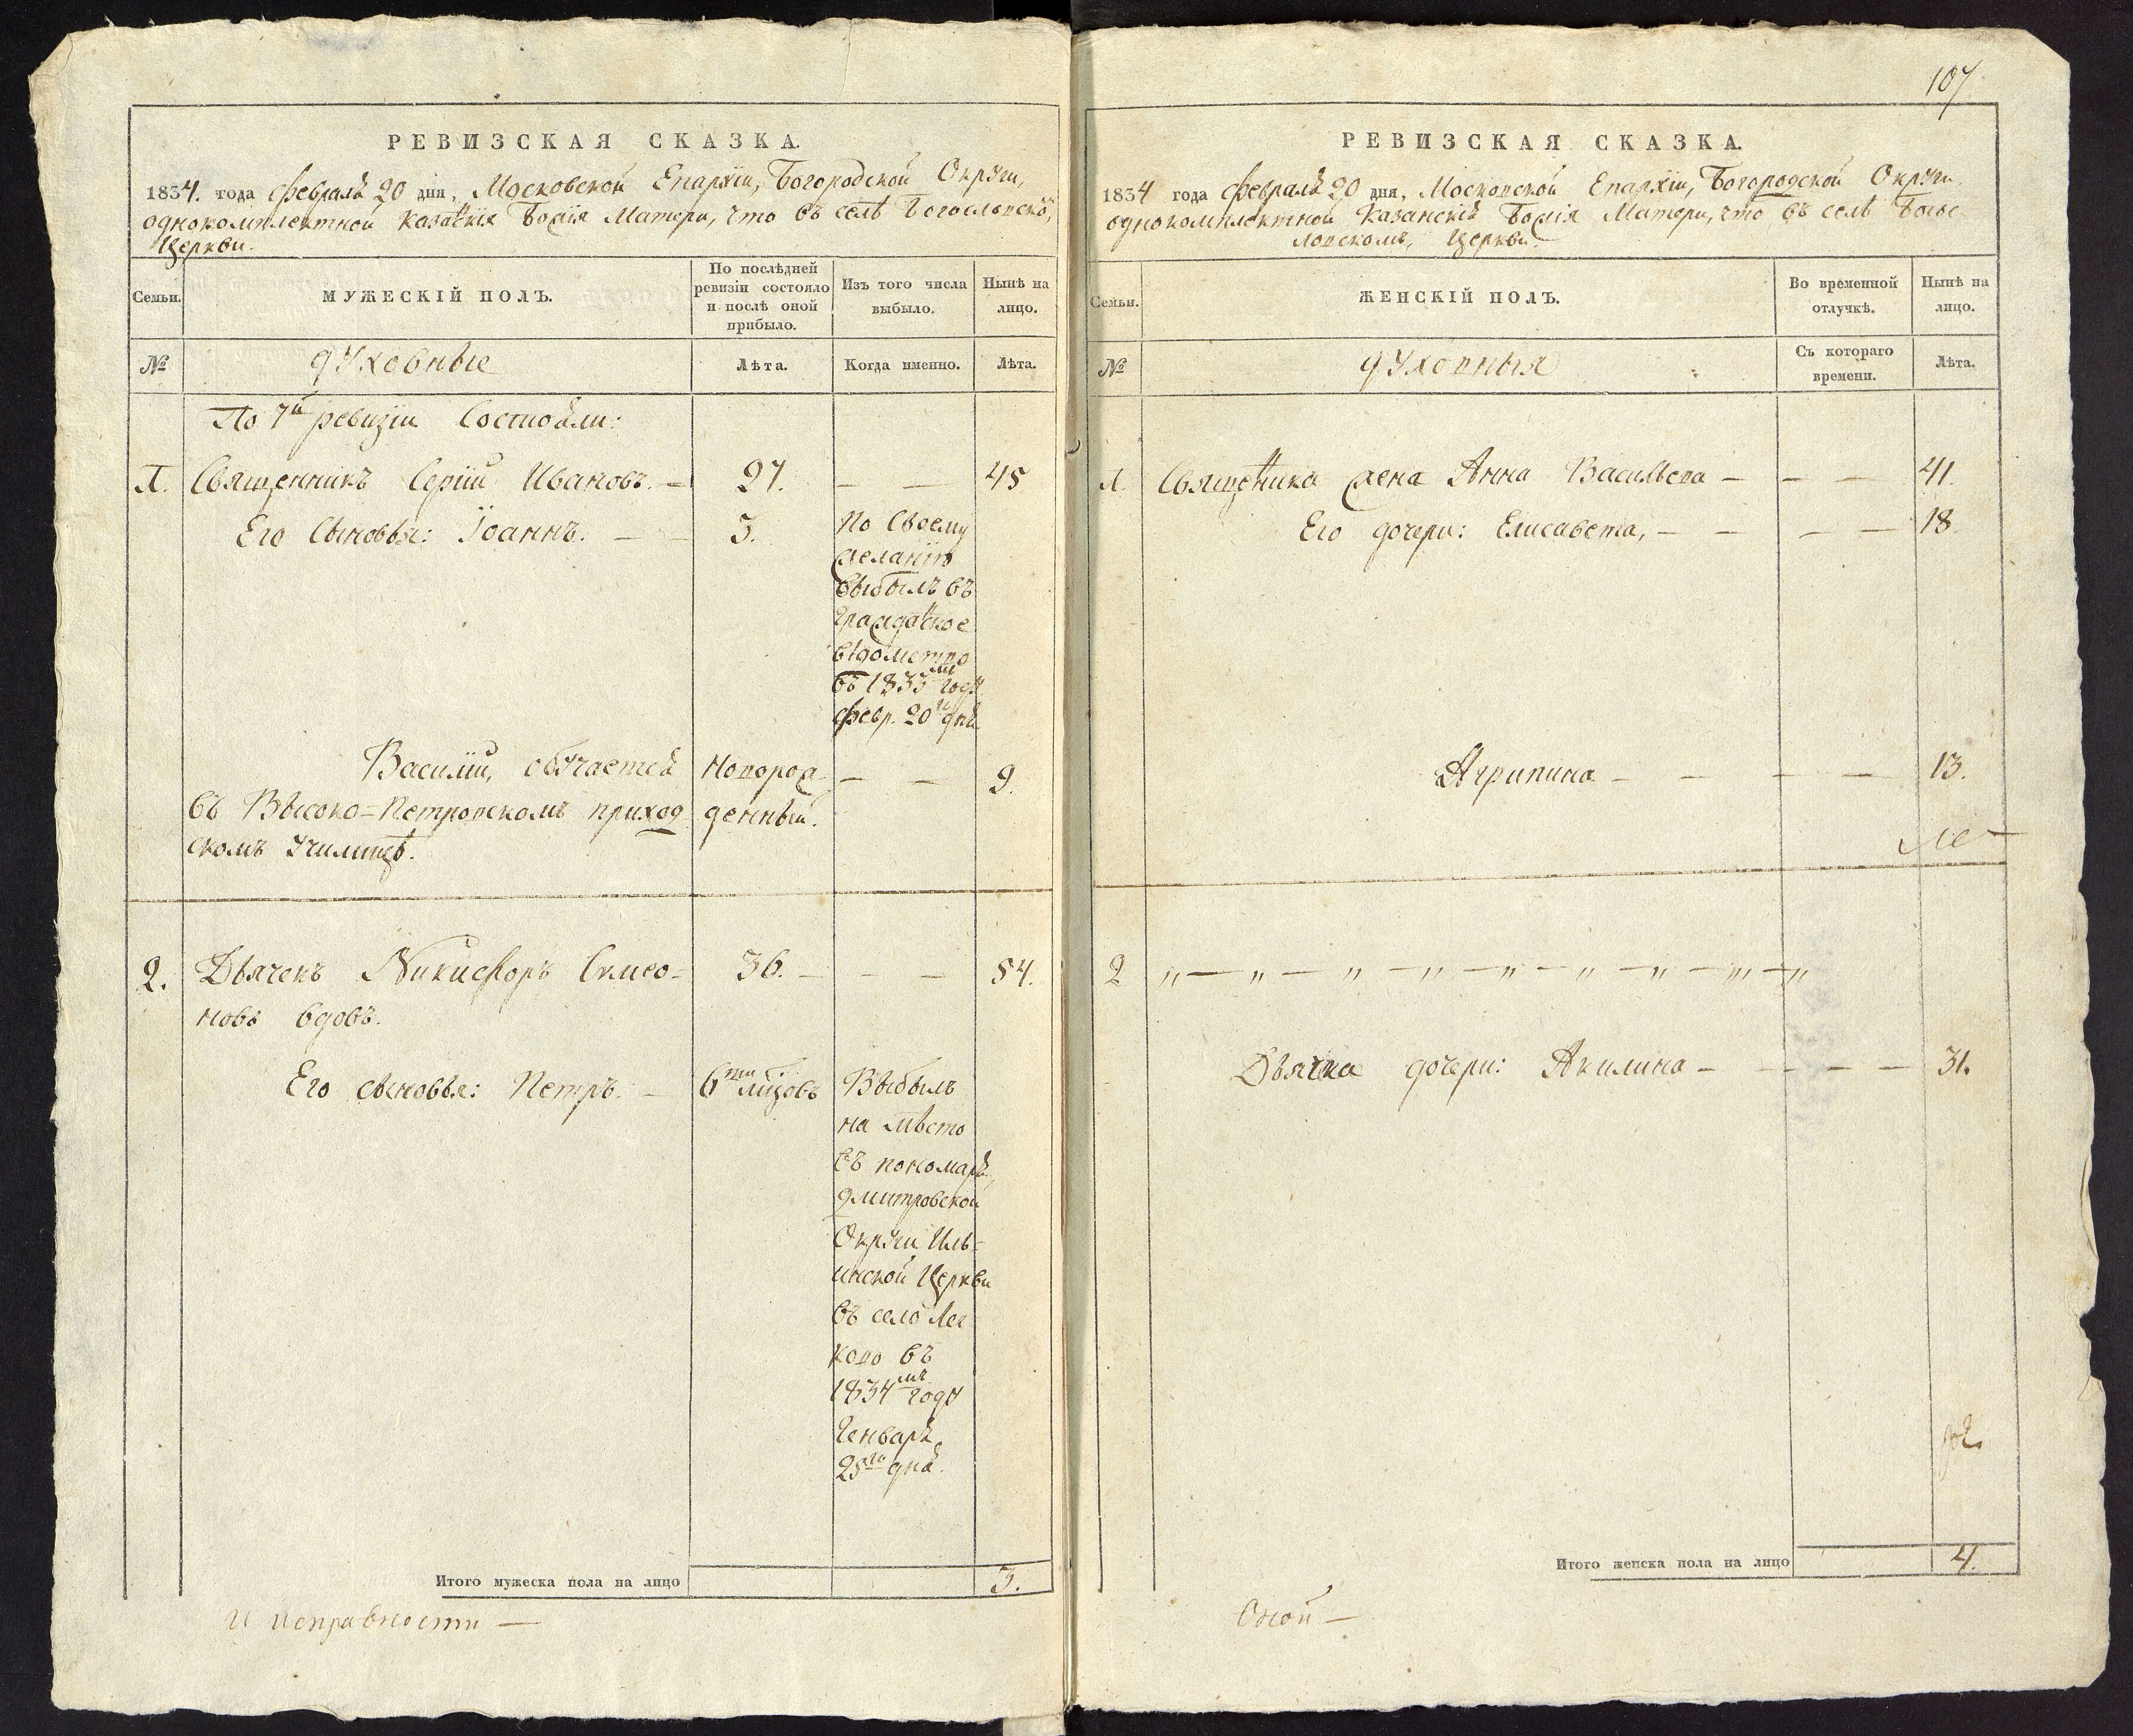 РЕВИЗСКАЯ СКАЗКА.
1834. года Февраля 20 дня, Московской Епархіи, Богородской Округи,
однокомплектной Казанскія Божія Матери, что въ селѣ Богословском,
Церкви.
Семьи.
МУЖЕСКІЙ ПОЛЪ.
По послѣдней
ревизіи состояло
и послѣ оной
прибыло.
Изъ того числа
выбыло.
Нынѣ на
лицо.
№
духовные
Лѣта.
Когда именно.
Лѣта.
По 7й ревизіи Состояли:
1. Священникъ Сергій Ивановъ. — 27. — — 45
Его Сыновья: Іоаннъ. — — 3. По Своему
желанію
выбылъ въ
Гражданское
вѣдомство
въ 1833мъ году
Февр. 20го дня
Василій, обучается Новорож- — — 9.
въ Высоко=Петровскомъ приход денный.
скомъ Училищѣ.
2. Дьячекъ Никифоръ Симео- 36. — — — 54.
новъ вдовъ.
Его сыновья: Петръ. — 6ти мѣсцовъ Выбылъ
на мѣсто
въ пономаря,
Дмитровской
Округи Иль-
инской Церкви
въ село
ково въ
1834мъ году
Генваря
25го дня.
Итого мужеска пола на лицо 3.
и исправности —
107
РЕВИЗСКАЯ СКАЗКА.
1834 года Февраля 20 дня, Московской Епархіи, Богородской Округи
однокомплектной Казанскія Божія Матери, что въ селѣ Богос
ловскомъ, Церкви.
Семьи.
ЖЕНСКІЙ ПОЛЪ.
Во временной
отлучкѣ.
Нынѣ на
лицо.
№
духовныя
Съ котораго
времени.
Лѣта.
1. Священника жена Анна Васильева — — — 41.
Его дочери: Елисавета, — — — — 18.
Агрипина — — — — 13.
2 „ — „ — „ — „ — „ — „ — „ — „ — „
Дьячка дочери: Акилина — — — — 31.
Итого женска пола на лицо 4.
Оной —